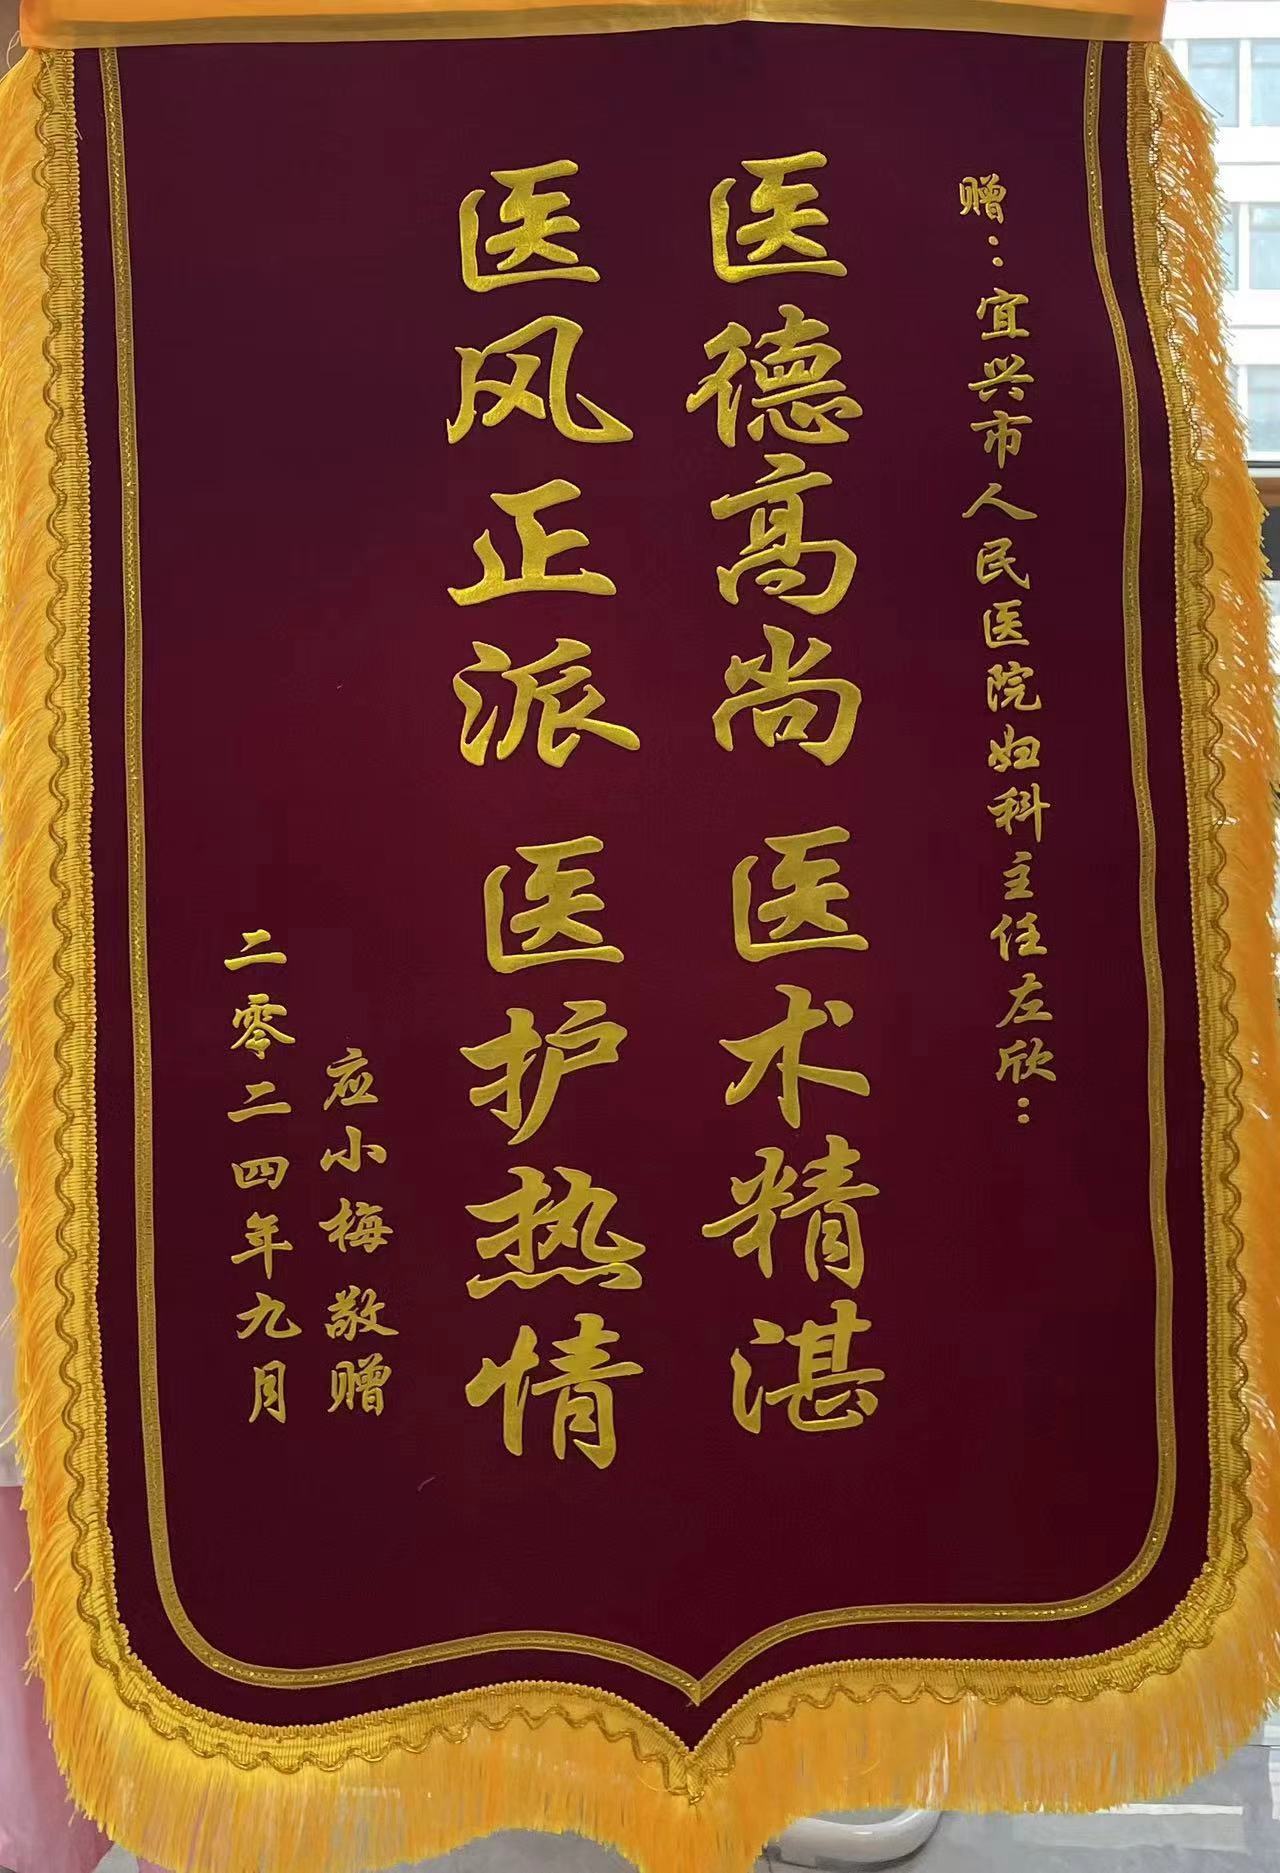 赠：宜兴市人民医院妇科主任左欣：
医德高尚 医术精湛
医风正派 医护热情
应小梅敬赠
二零二四年九月